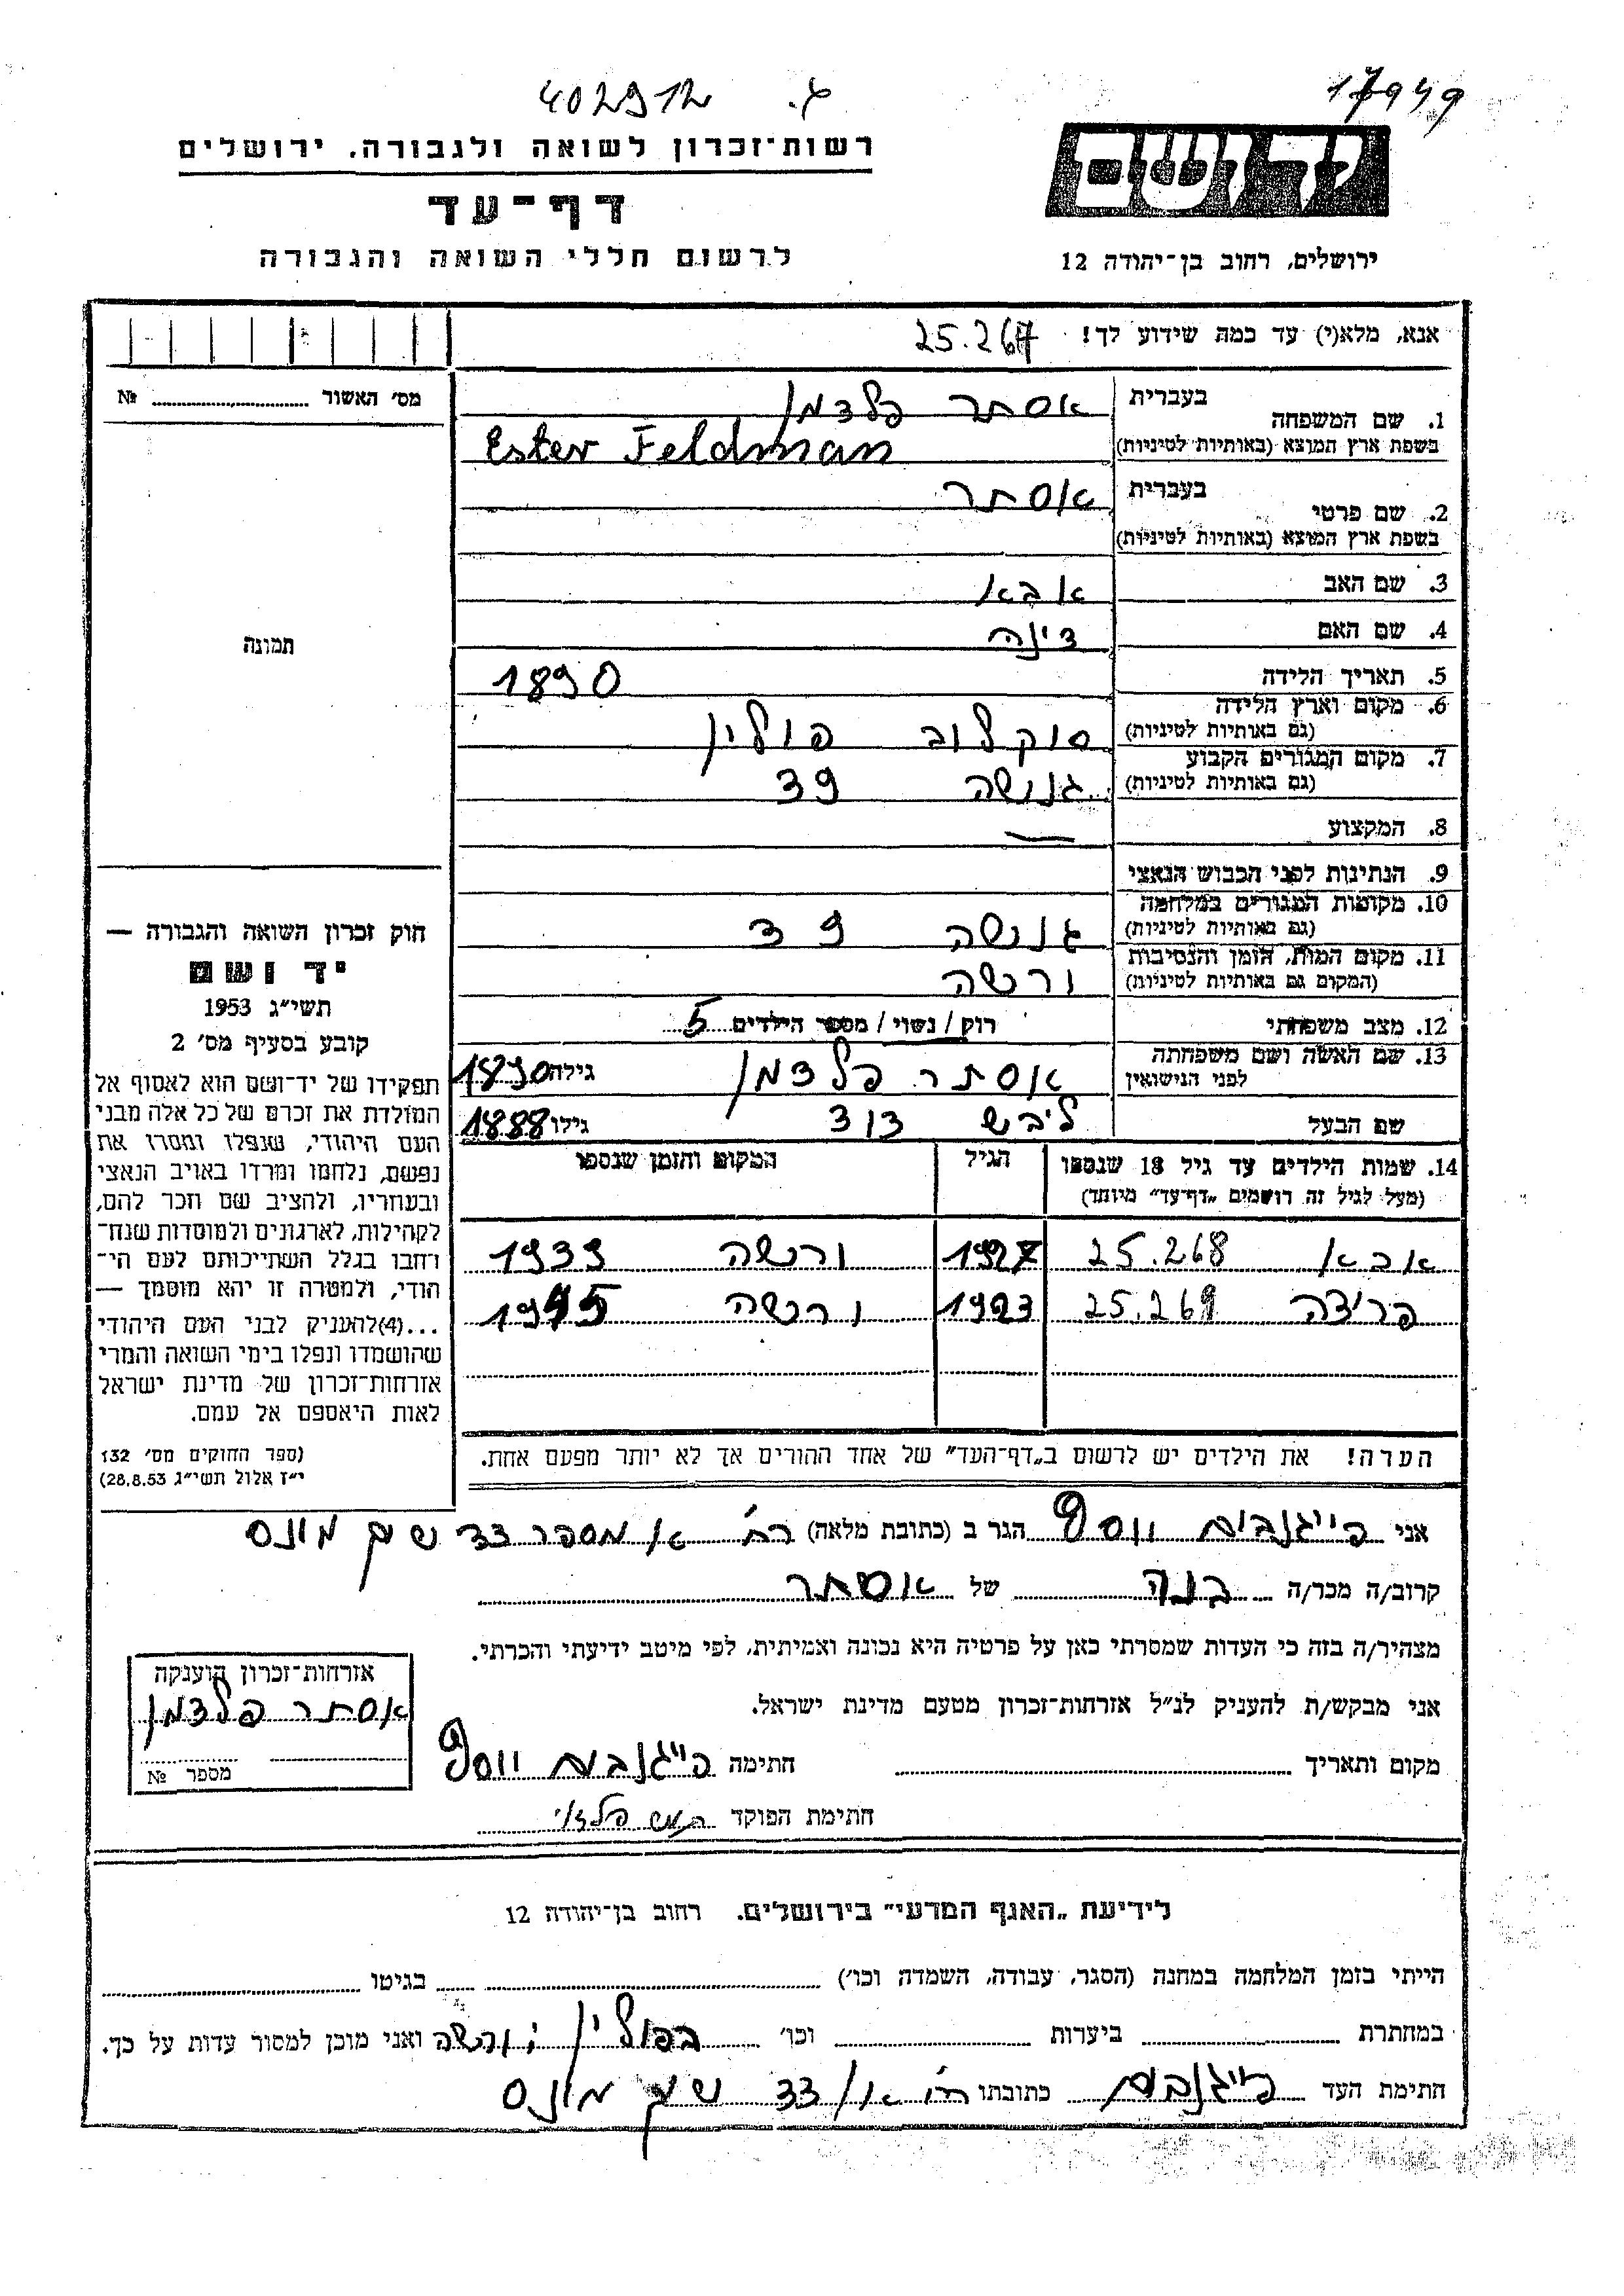 402912 ג.
17949
רשות־זכרון לשואה ולגבורה. ירושלים
דף־עד
לרשום חללי השואה והגבורה
יד ושם
ירושלים, רחוב בן־יהודה 12
אנא, מלא(י) עד כמה שידוע לך! 25.267
מס׳ האשור № 
תמונה
1. שם המשפחה בעברית אסתר פלדמן
בשפת ארץ המוצא (באותיות לטיניות) Ester Feldman
2. שם פרטי בעברית אסתר
בשפת ארץ המוצא (באותיות לטיניות)
3. שם האב אבא
4. שם האם דינה
5. תאריך הלידה 1890
6. מקום וארץ הלידה (גם באותיות לטיניות) סוקלוב פולין
7. מקום המגורים הקבוע (גם באותיות לטיניות) גנשה 39
8. המקצוע —
9. הנתינות לפני הכבוש הנאצי
10. מקומות המגורים במלחמה (גם באותיות לטיניות) גנשה 39
11. מקום המות, הזמן והנסיבות (המקום גם באותיות לטיניות) ורשה
12. מצב משפחתי רוק / נשוי / מספר הילדים 5
13. שם האשה ושם משפחתה לפני הנישואין אסתר פלדמן גילה 1890
שם הבעל ליבש דוד גילו 1888
14. שמות הילדים עד גיל 18 שנספו הגיל המקום והזמן שנספו
(מעל לגיל זה רושמים „דף־עד״ מיוחד)
אבא 25.268 1927 ורשה 1939
פריצה 25.269 1923 ורשה 1945
הערה! את הילדים יש לרשום ב„דף־העד״ של אחד ההורים אך לא יותר מפעם אחת.
חוק זכרון השואה והגבורה —
יד ושם
תשי״ג 1953
קובע בסעיף מס׳ 2
תפקידו של יד־ושם הוא לאסוף אל
המולדת את זכרם של כל אלה מבני
העם היהודי, שנפלו ומסרו את
נפשם, נלחמו ומרדו באויב הנאצי
ובעוזריו, ולהציב שם וזכר להם,
לקהילות, לארגונים ולמוסדות שנח־
רחבו בגלל השתייכותם לעם הי־
הודי, ולמטרה זו יהא מוסמך —
...(4)להעניק לבני העם היהודי
שהושמדו ונפלו בימי השואה והמרי
אזרחות־זכרון של מדינת ישראל
לאות היאספם אל עמם.
(ספר החוקים מס׳ 132
י״ז אלול תשי״ג 28.8.53)
אני פייגנבוים יוסף הגר ב (כתובת מלאה) רח׳ א/ מספר 33 שך מונס
קרוב/ה מכר/ה בנה של אסתר
מצהיר/ה בזה כי העדות שמסרתי כאן על פרטיה היא נכונה ואמיתית, לפי מיטב ידיעתי והכרתי.
אני מבקש/ת להעניק לנ״ל אזרחות־זכרון מטעם מדינת ישראל.
מקום ותאריך חתימה פייגנבוים יוסף
חתימת הפוקד
אזרחות־זכרון הוענקה
אסתר פלדמן
מספר №
לידיעת „האגף המדעי״ בירושלים. רחוב בן־יהודה 12
הייתי בזמן המלחמה במחנה (הסגר, עבודה, השמדה וכו׳) בגיטו
במחתרת ביערות וכו׳ בפולין ורשה ואני מוכן למסור עדות על כך.
חתימת העד פייגנבוים כתובתו רח׳ א/ 33 שך מונס